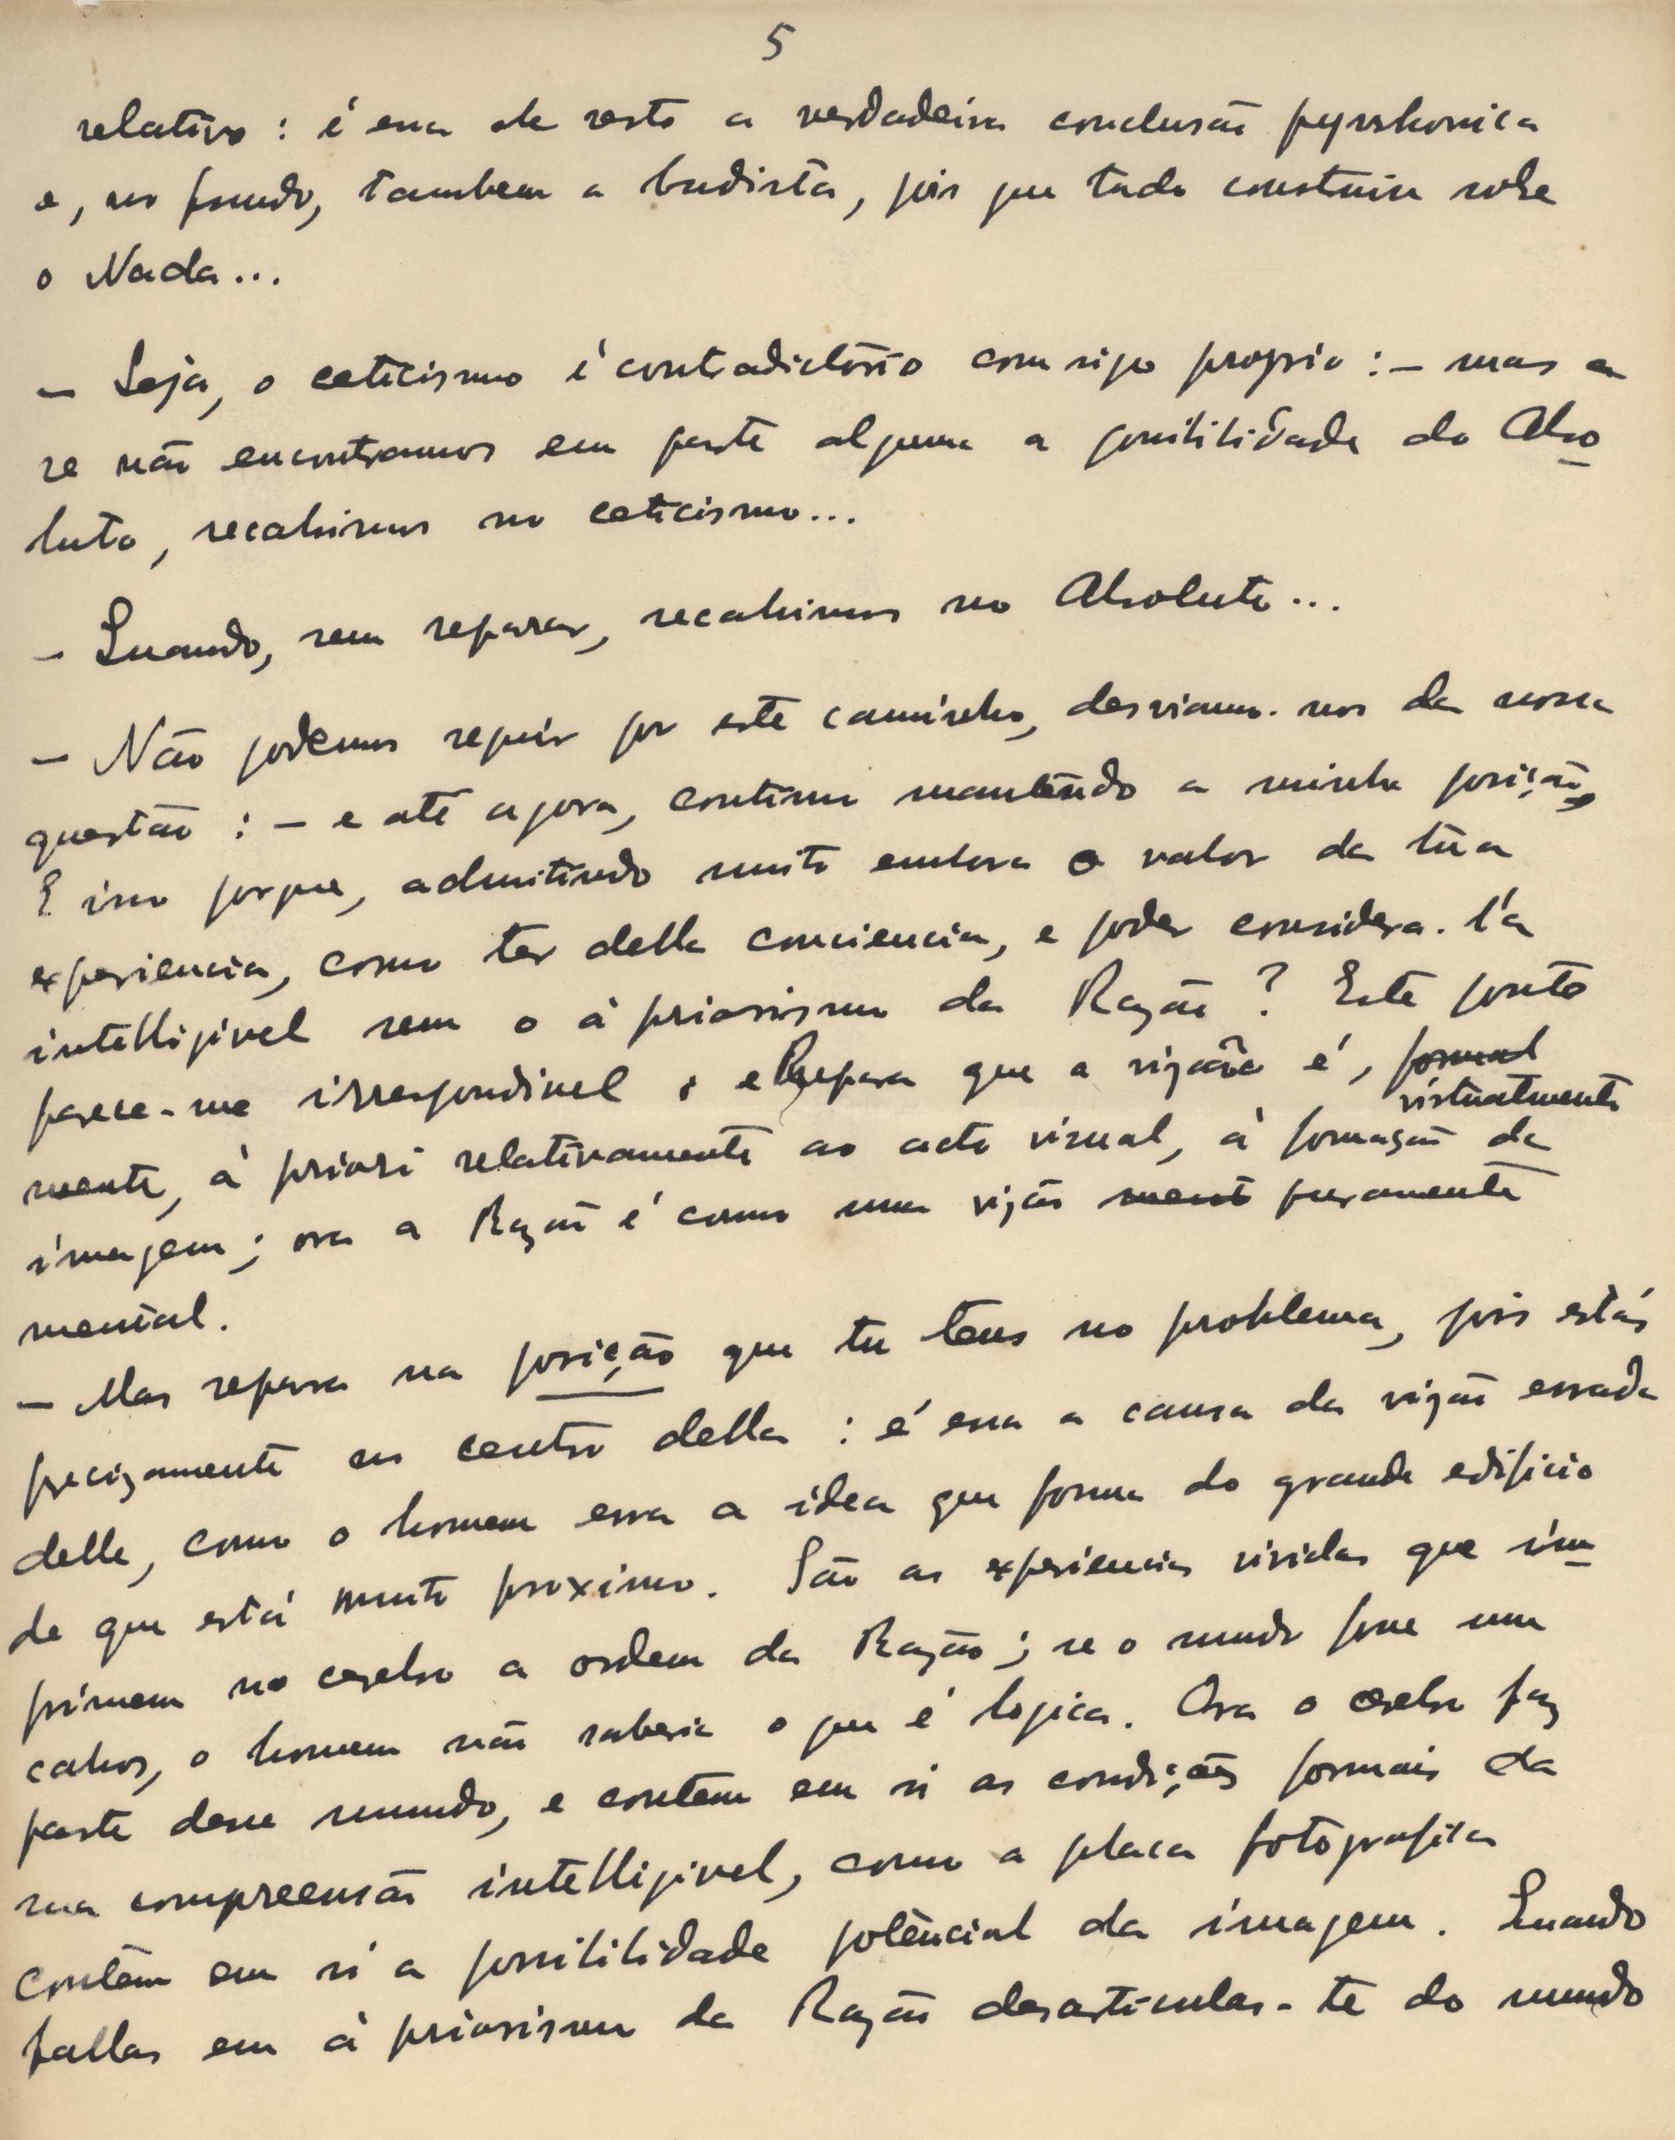 5
relativo : é essa de resto a verdadeira conclusão pyrrhonica
e, no fundo, tambem a budista, pois que tudo construiu sobre
o Nada...
— Seja, o ceticismo é contradictório comsigo proprio : — mas
se não encontramos em parte alguma a possibilidade do Abso
luto, recahimos no ceticismo...
— Quando, sem reparar, recahimos no Absoluto...
— Não podemos seguir por este caminho, desviamo-nos da nossa
questão : — e até agora, continuo mantendo a minha posição,
E isso porque, admitindo muito embora o valor da tùa
experiencia, como ter della conciencia, e poder considera-l'a
intelligivel sem o á priorismo da Razão ? Este ponto
parece-me irrespondivel, e Repara que a vizão é, formal
virtualmente
mente, á priori relativamente ao acto visual, á formação da
imagem ; ora a Razão é como uma vizão ment puramente
mental.
— Mas repara na posição que tu tens no problema, pois estás
precizamente no centro della : é essa a causa da vizão errada
delle, como o homem erra a idea que forma do grande edificio
de que está muito proximo. São as experiencias vividas que im
primem no cerebro a ordem da Razão ; se o mundo fosse um
cahos, o homem não saberia o que é logica. Ora o cerebro faz
parte desse mundo, e contem em si as condições formais da
sua compreensão intelligivel, como a placa fotografica
contém em si a possibilidade potêncial da imagem. Quando
fallas em á priorismo da Razão desarticulas-te do mundo